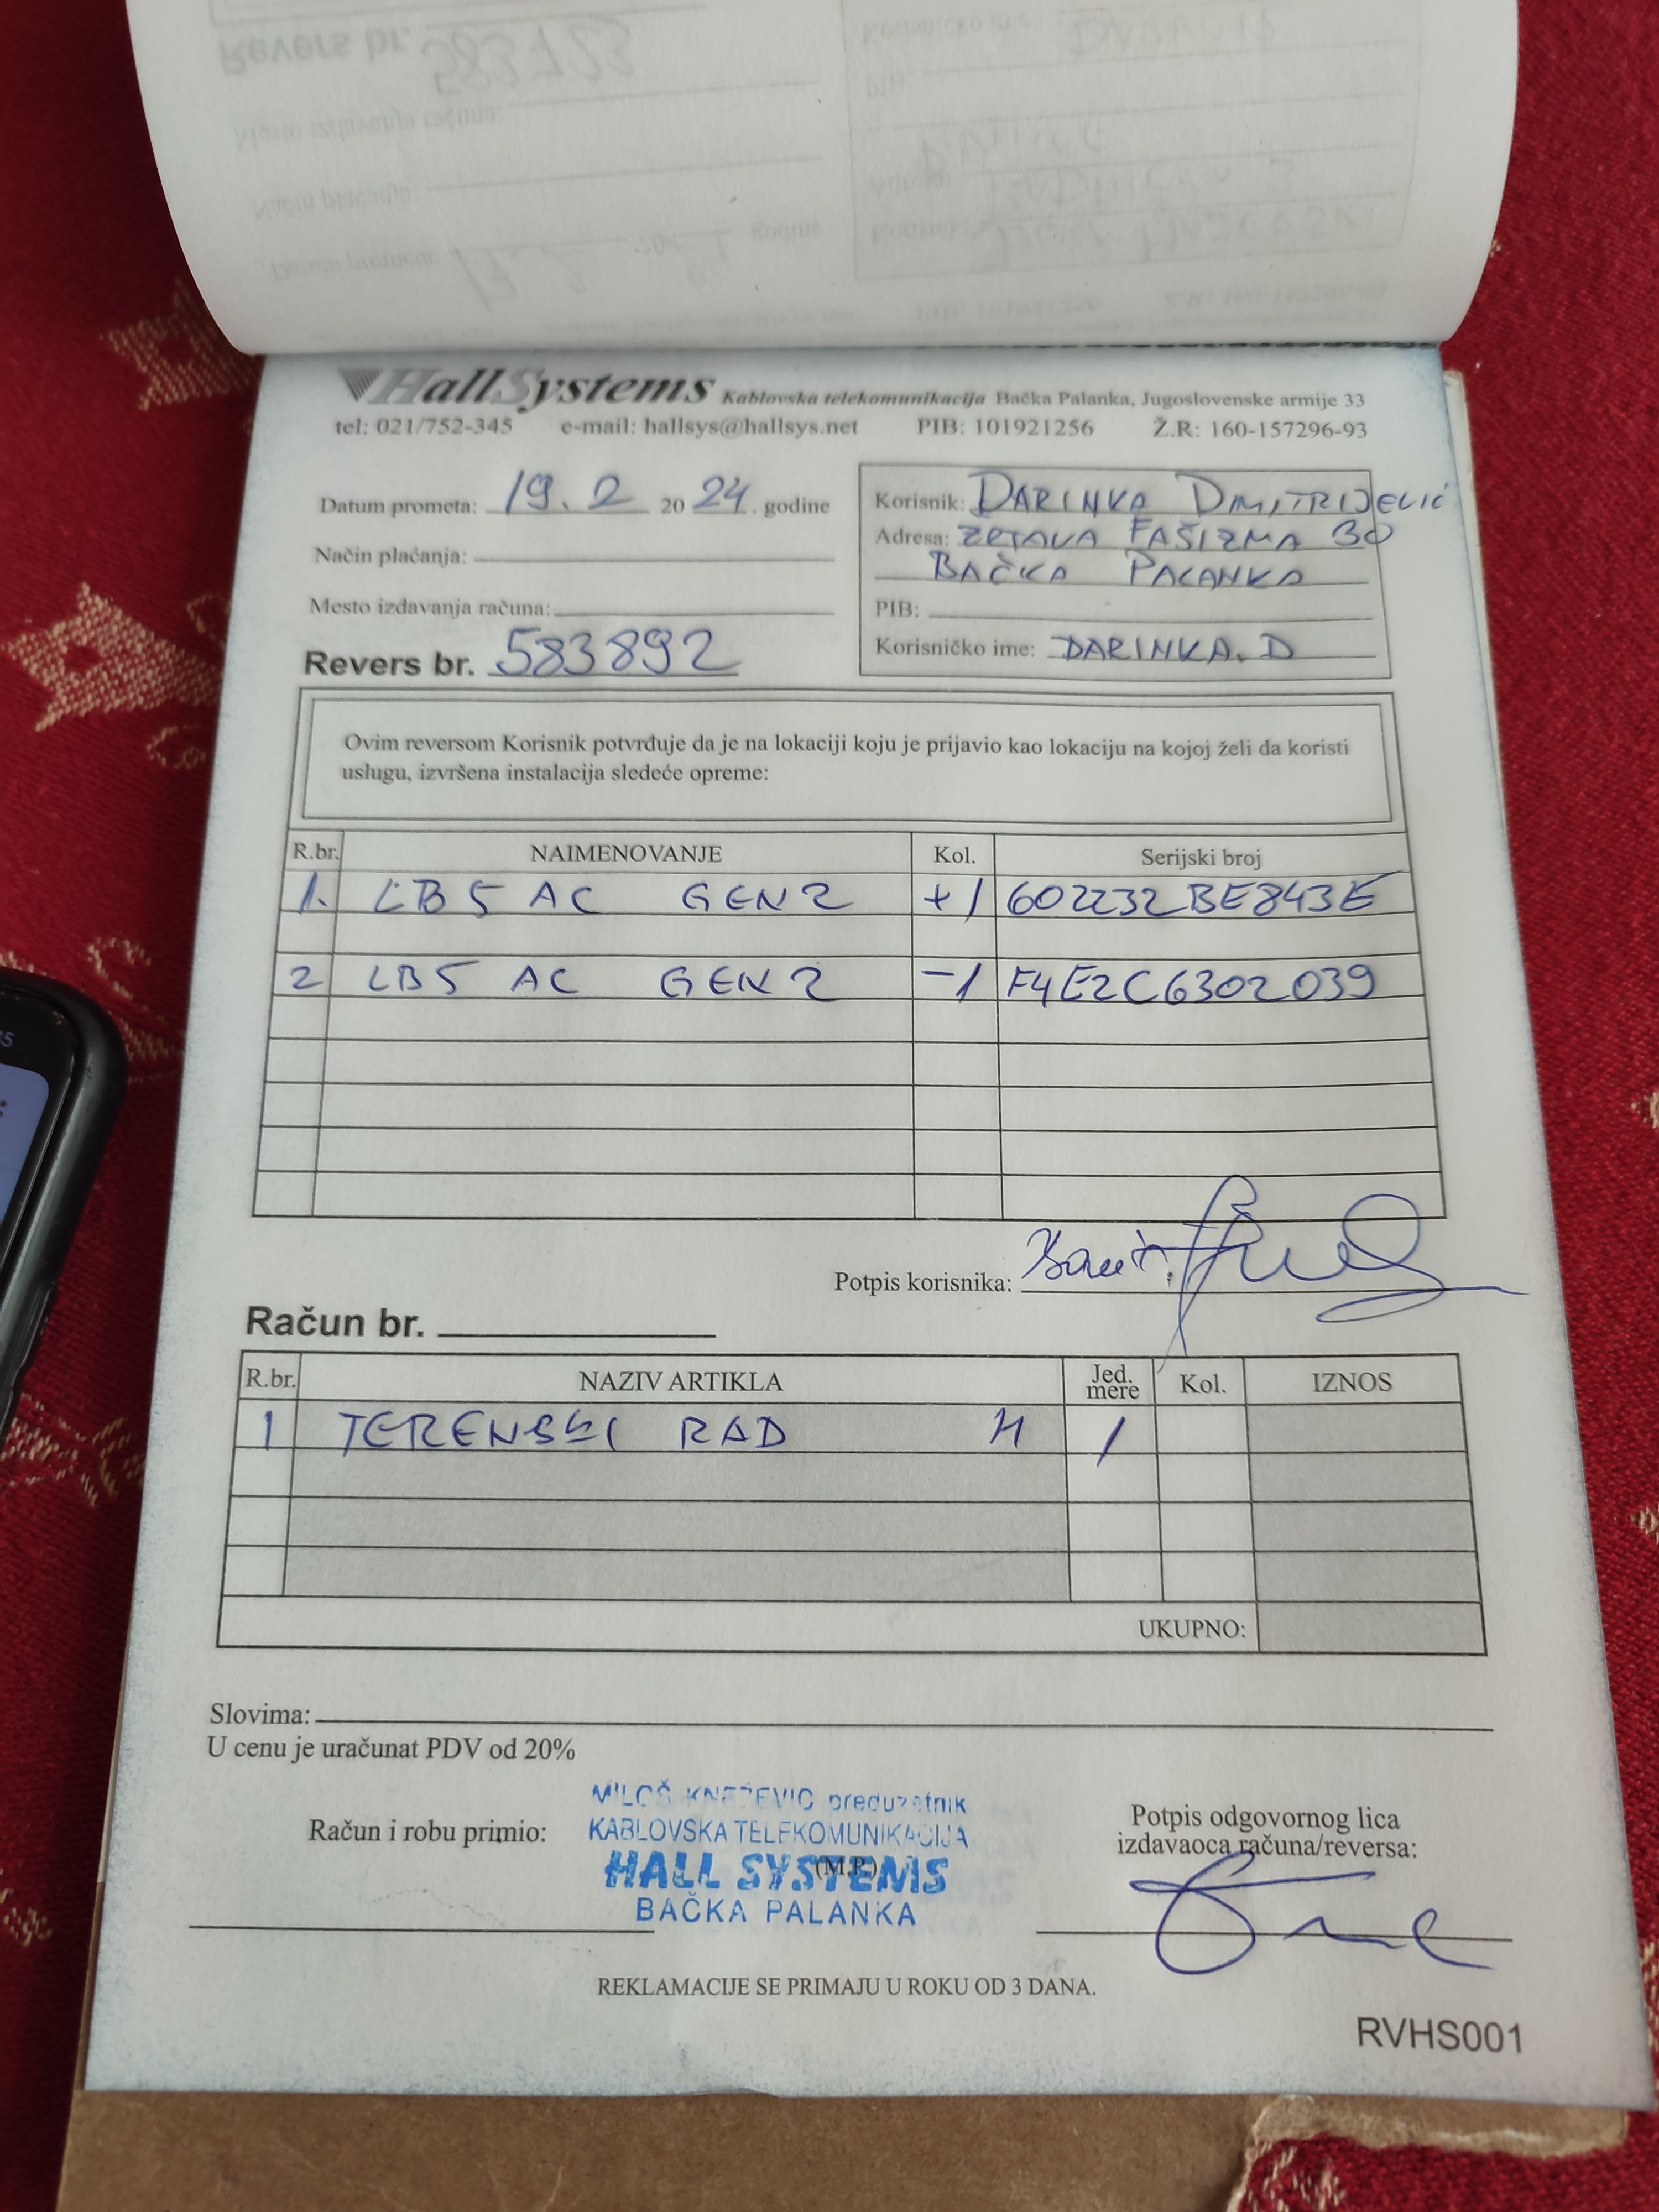 HallSystems Kablovska telekomunikacija Bačka Palanka, Jugoslovenske armije 33
tel: 021/752-345 e-mail: hallsys@hallsys.net PIB: 101921256 Ž.R: 160-157296-93
Datum prometa: 19. 2 20 24. godine
Način plaćanja:
Mesto izdavanja računa:
Revers br. 583892
Korisnik: DARINKA DMITRIJEVIĆ
Adresa: ŽRTAVA FAŠIZMA 30
BAČKA PALANKA
PIB:
Korisničko ime: DARINKA.D
Ovim reversom Korisnik potvrđuje da je na lokaciji koju je prijavio kao lokaciju na kojoj želi da koristi
uslugu, izvršena instalacija sledeće opreme:
R.br. NAIMENOVANJE Kol. Serijski broj
1. LB5 AC GEN2 +1 602232BE843E
2 LB5 AC GEN2 -1 F4E2C6302039
Potpis korisnika:
Račun br.
R.br. NAZIV ARTIKLA Jed. mere Kol. IZNOS
1 TERENSKI RAD H 1
UKUPNO:
Slovima:
U cenu je uračunat PDV od 20%
Račun i robu primio:
MILOŠ KNEŽEVIĆ preduzetnik
KABLOVSKA TELEKOMUNIKACIJA
HALL SYSTEMS
(M.P.)
BAČKA PALANKA
Potpis odgovornog lica
izdavaoca računa/reversa:
REKLAMACIJE SE PRIMAJU U ROKU OD 3 DANA.
RVHS001